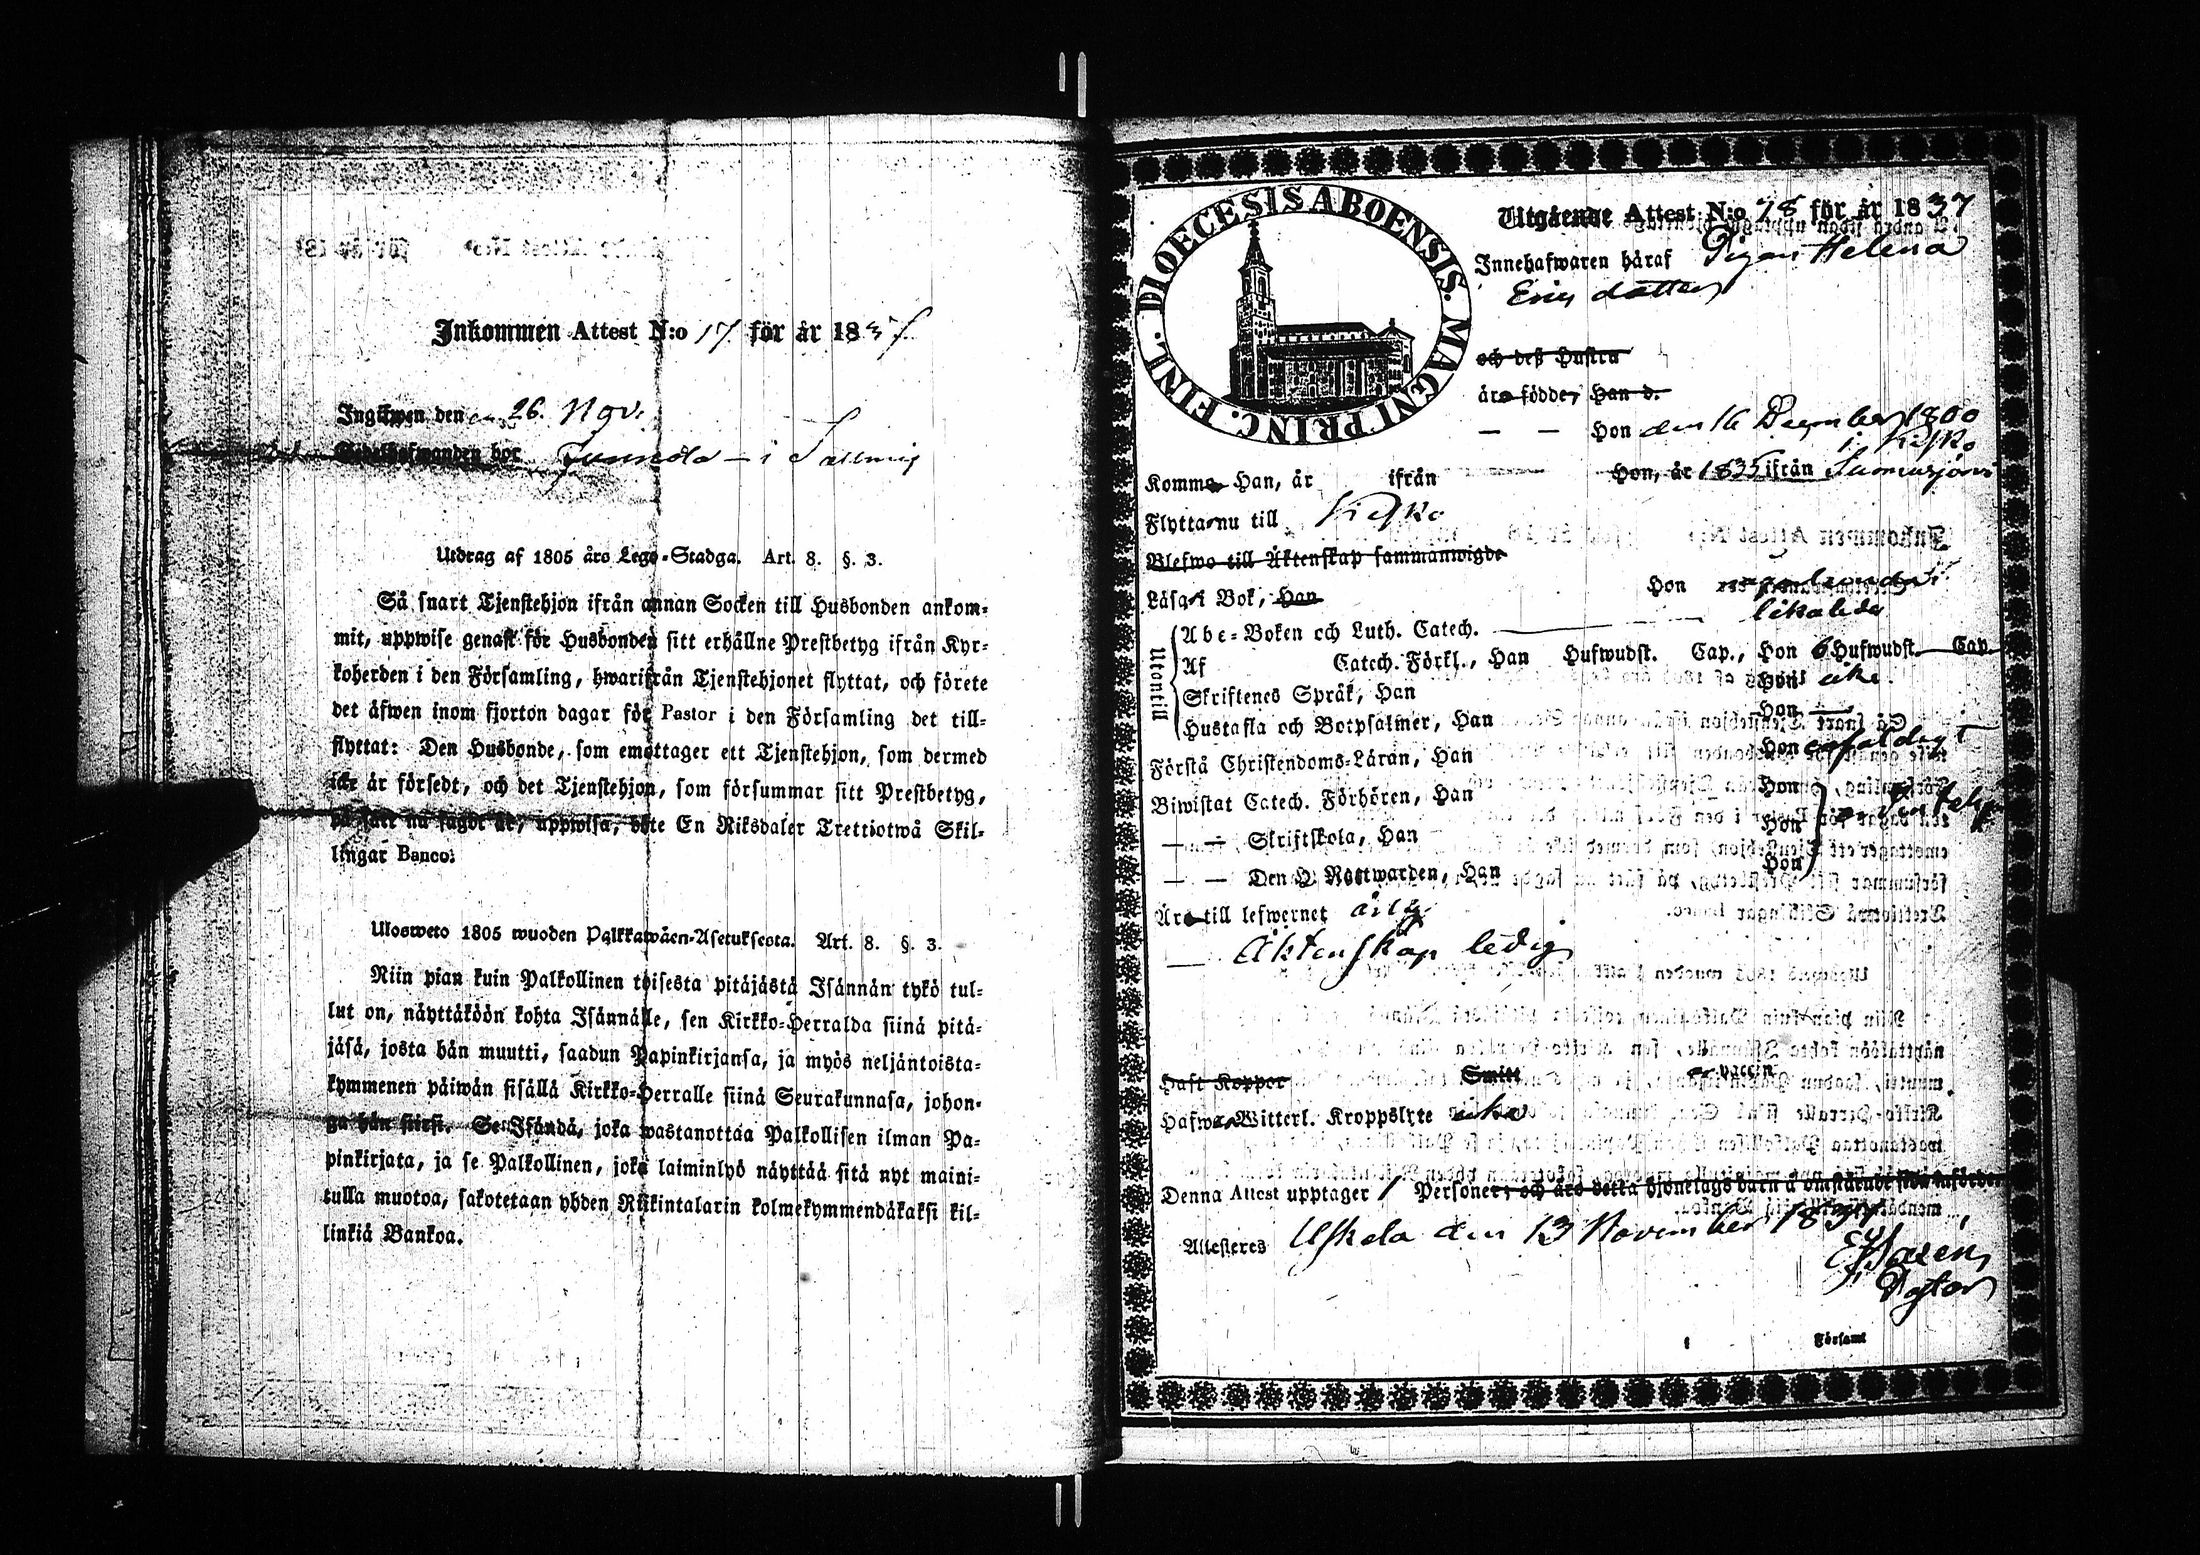 Inkommen Attest N:o 17 för år 1837
Ingifwen den 26. Nov.
bor i
Utdrag af 1805 års Lego-Stadga. Art. 8. §. 3.
Så snart Tjenstehjon ifrån annan Socken till Husbonden ankom-
mit, uppwise genast för Husbonden sitt erhållne Prestbetyg ifrån Kyr-
koherden i den Församling, hwarifrån Tjenstehjonet flyttat, och förete
det äfwen inom fjorton dagar för Pastor i den Församling det till-
flyttat: Den Husbonde, som emottager ett Tjenstehjon, som dermed
icke är försedt, och det Tjenstehjon, som försummar sitt Prestbetyg,
på sätt nu sagdt är, uppwisa, böte En Riksdaler Trettiotwå Skil-
lingar Banco.
Ulosweto 1805 wuoden Palkkawäen-Asetuksesta. Art. 8. §. 3.
Niin pian kuin Palkollinen toisesta pitäjästä Isännän tykö tul-
lut on, näyttäköön kohta Isännälle, sen Kirkko-Herralda siinä pitä-
jäsä, josta hän muutti, saadun Papinkirjansa, ja myös neljäntoista-
kymmenen päiwän sisällä Kirkko-Herralle siinä Seurakunnasa, johon-
ga hän siirsi. Se Isändä, joka wastanottaa Palkollisen ilman Pa-
pinkirjata, ja se Palkollinen, joka laiminlyö näyttää sitä nyt maini-
tulla muotoa, sakotetaan yhden Riikintalarin kolmekymmendäkaksi kil-
linkiä Bankoa.
DIOECESIS ABOENSIS. MAGNI PRINC. FINL.
Utgående Attest N:o 78 för år 1837
Innehafwaren häraf Pigan Helena
Ericsdotter
och deß Hustru
äro födde, Han d.
— — Hon den 16 December 1800
i Kisko
Komme Han, år ifrån Hon, år 1835 ifrån Suomusjärvi
Flytta nu till Kisko
Blefwo till Äktenskap sammanwigde
Läsa i Bok, Han Hon
Utantill
Abc-Boken och Luth. Catech. likaledes
Af Catech. Förkl., Han Hufwudst. Cap., Hon 6 Hufwudst. Cap.
Skriftenes Språk, Han Hon icke
Hustafla och Botpsalmer, Han Hon —
Förstå Christendoms-Läran, Han Hon enfaldigt
Biwistat Catech. Förhören, Han Hon
— — Skriftskola, Han Hon
— — Den H. Nattwarden, Han Hon
Äro till lefwernet ärlig
— Äktenskap ledig
Haft Koppor Smitt vaccin
Hafwa Witterl. Kroppslyte icke
Denna Attest upptager 1 Personer, och äro detta hjonelags barn å omstående sida införde
Attesteras Uskela den 13 November 1837
Pastor
Församl